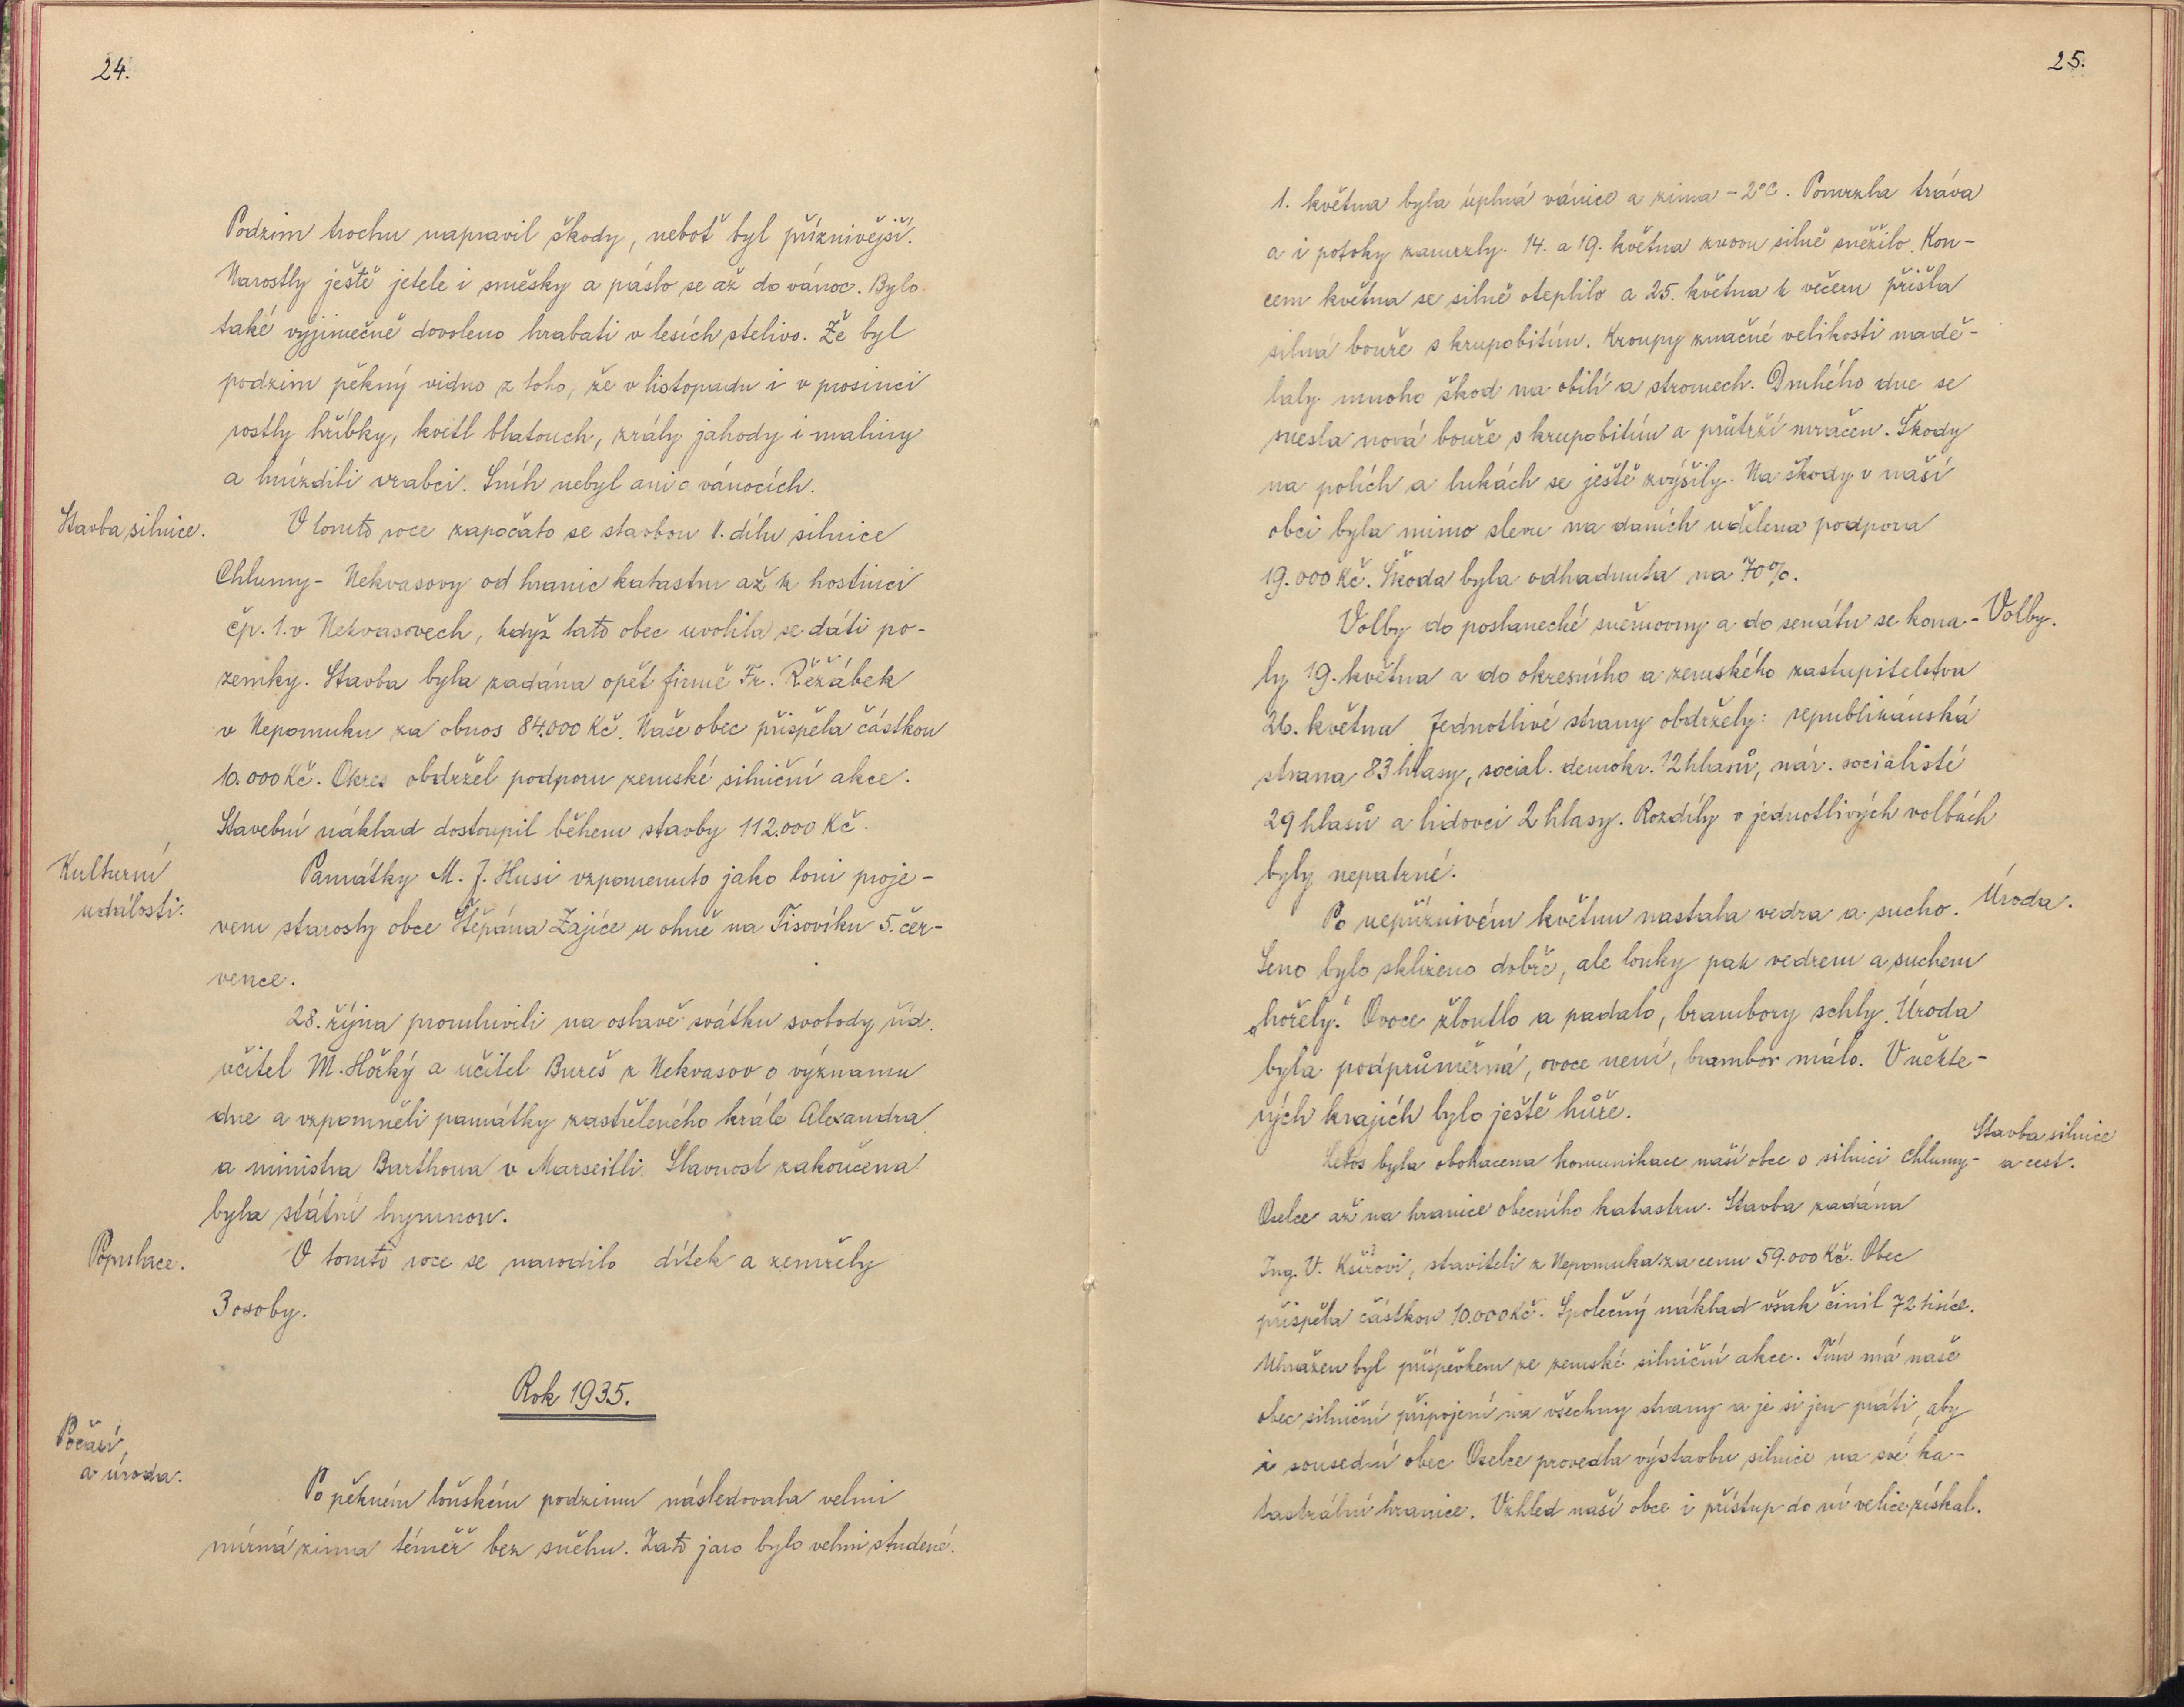 24.
Podzim trochu napravil škody, neboť byl příznivější.
Narostly ještě jetele i směsky a páslo se až do vánoc. Bylo
také vyjímečně dovoleno hrabati v lesích stelivo. Že byl
podzim pěkný vidno z toho, že v listopadu i v prosinci
rostly hříbky, kvetl blatouch, zrály jahody i maliny
a hnízdili vrabci. Sníh nebyl ani o vánocích.
Stavba silnice.
V tomto roce započato se stavbou 1. dílu silnice
Chlumy - Nekvasovy od hranic katastru až k hostinci
čp. 1. v Nekvasovech, když tato obec uvolila se dáti po-
zemky. Stavba byla zadána opět firmě Fr. Řežábek
v Nepomuku za obnos 84.000 Kč. Naše obec přispěla částkou
10.000 Kč. Okres obdržel podporu zemské silniční akce.
Stavební náklad dostoupil během stavby 112.000 Kč.
Kulturní
události.
Památky M. J. Husi vzpomenuto jako loni proje-
vem starosty obce Štěpána Zajíce u ohně na Tisovíku 5. čer-
vence.
28. října promluvili na oslavě svátku svobody říd.
učitel M. Hořký a učitel Bureš z Nekvasov o významu
dne a vzpomněli památky zastřeleného krále Alexandra
a ministra Barthoua v Marseilli. Slavnost zakončena
byla státní hymnou.
Populace.
V tomto roce se narodilo dítek a zemřely
3 osoby.
Rok 1935.
Počasí,
a úroda.
Po pěkném loňském podzimu následovala velmi
mírná zima téměř bez sněhu. Zato jaro bylo velmi studené.
25.
1. května byla úplná vánice a zima - 2°C. Pomrzla tráva
a i potoky zamrzly. 14. a 19. května znovu silně sněžilo. Kon-
cem května se silně oteplilo a 25. května k večeru přišla
silná bouře s krupobitím. Kroupy značné velikosti nadě-
laly mnoho škod na obilí a stromech. Druhého dne se
snesla nová bouře s krupobitím a průtrží mračen. Škody
na polích a lukách se ještě zvýšily. Na škody v naší
obci byla mimo slevu na daních udělena podpora
19.000 Kč. Škoda byla odhadnuta na 70%.
Volby do poslanecké sněmovny a do senátu se kona-
Volby.
ly 19. května a do okresního a zemského zastupitelstva
26. května Jednotlivé strany obdržely: republikánská
strana 83 hlasy, social. demokr. 12 hlasů, nár. socialisté
29 hlasů a lidovci 2 hlasy. Rozdíly v jednotlivých volbách
byly nepatrné.
Po nepříznivém květnu nastala vedra a sucho.
Úroda.
Seno bylo sklizeno dobře, ale louky pak vedrem a suchem
„hořely." Ovoce žloutlo a padalo, brambory schly. Úroda
byla podprůměrná, ovoce není, brambor málo. V někte-
rých krajích bylo ještě hůře.
Stavba silnice
a cest.
Letos byla obohacena komunikace naší obce o silnici Chlumy -
Oselce až na hranice obecního katastru. Stavba zadána
Ing. V. staviteli z Nepomuka za cenu 59.000 Kč. Obec
přispěla částkou 10.000 Kč. Společný náklad však činil 72 tisíce.
Uhražen byl příspěvkem ze zemské silniční akce. Tím má naše
obec silniční připojení na všechny strany a je si jen přáti, aby
i sousední obec Oselce provedla výstavbu silnice na své ka-
tastrální hranice. Vzhled naší obce i přístup do ní velice získal.